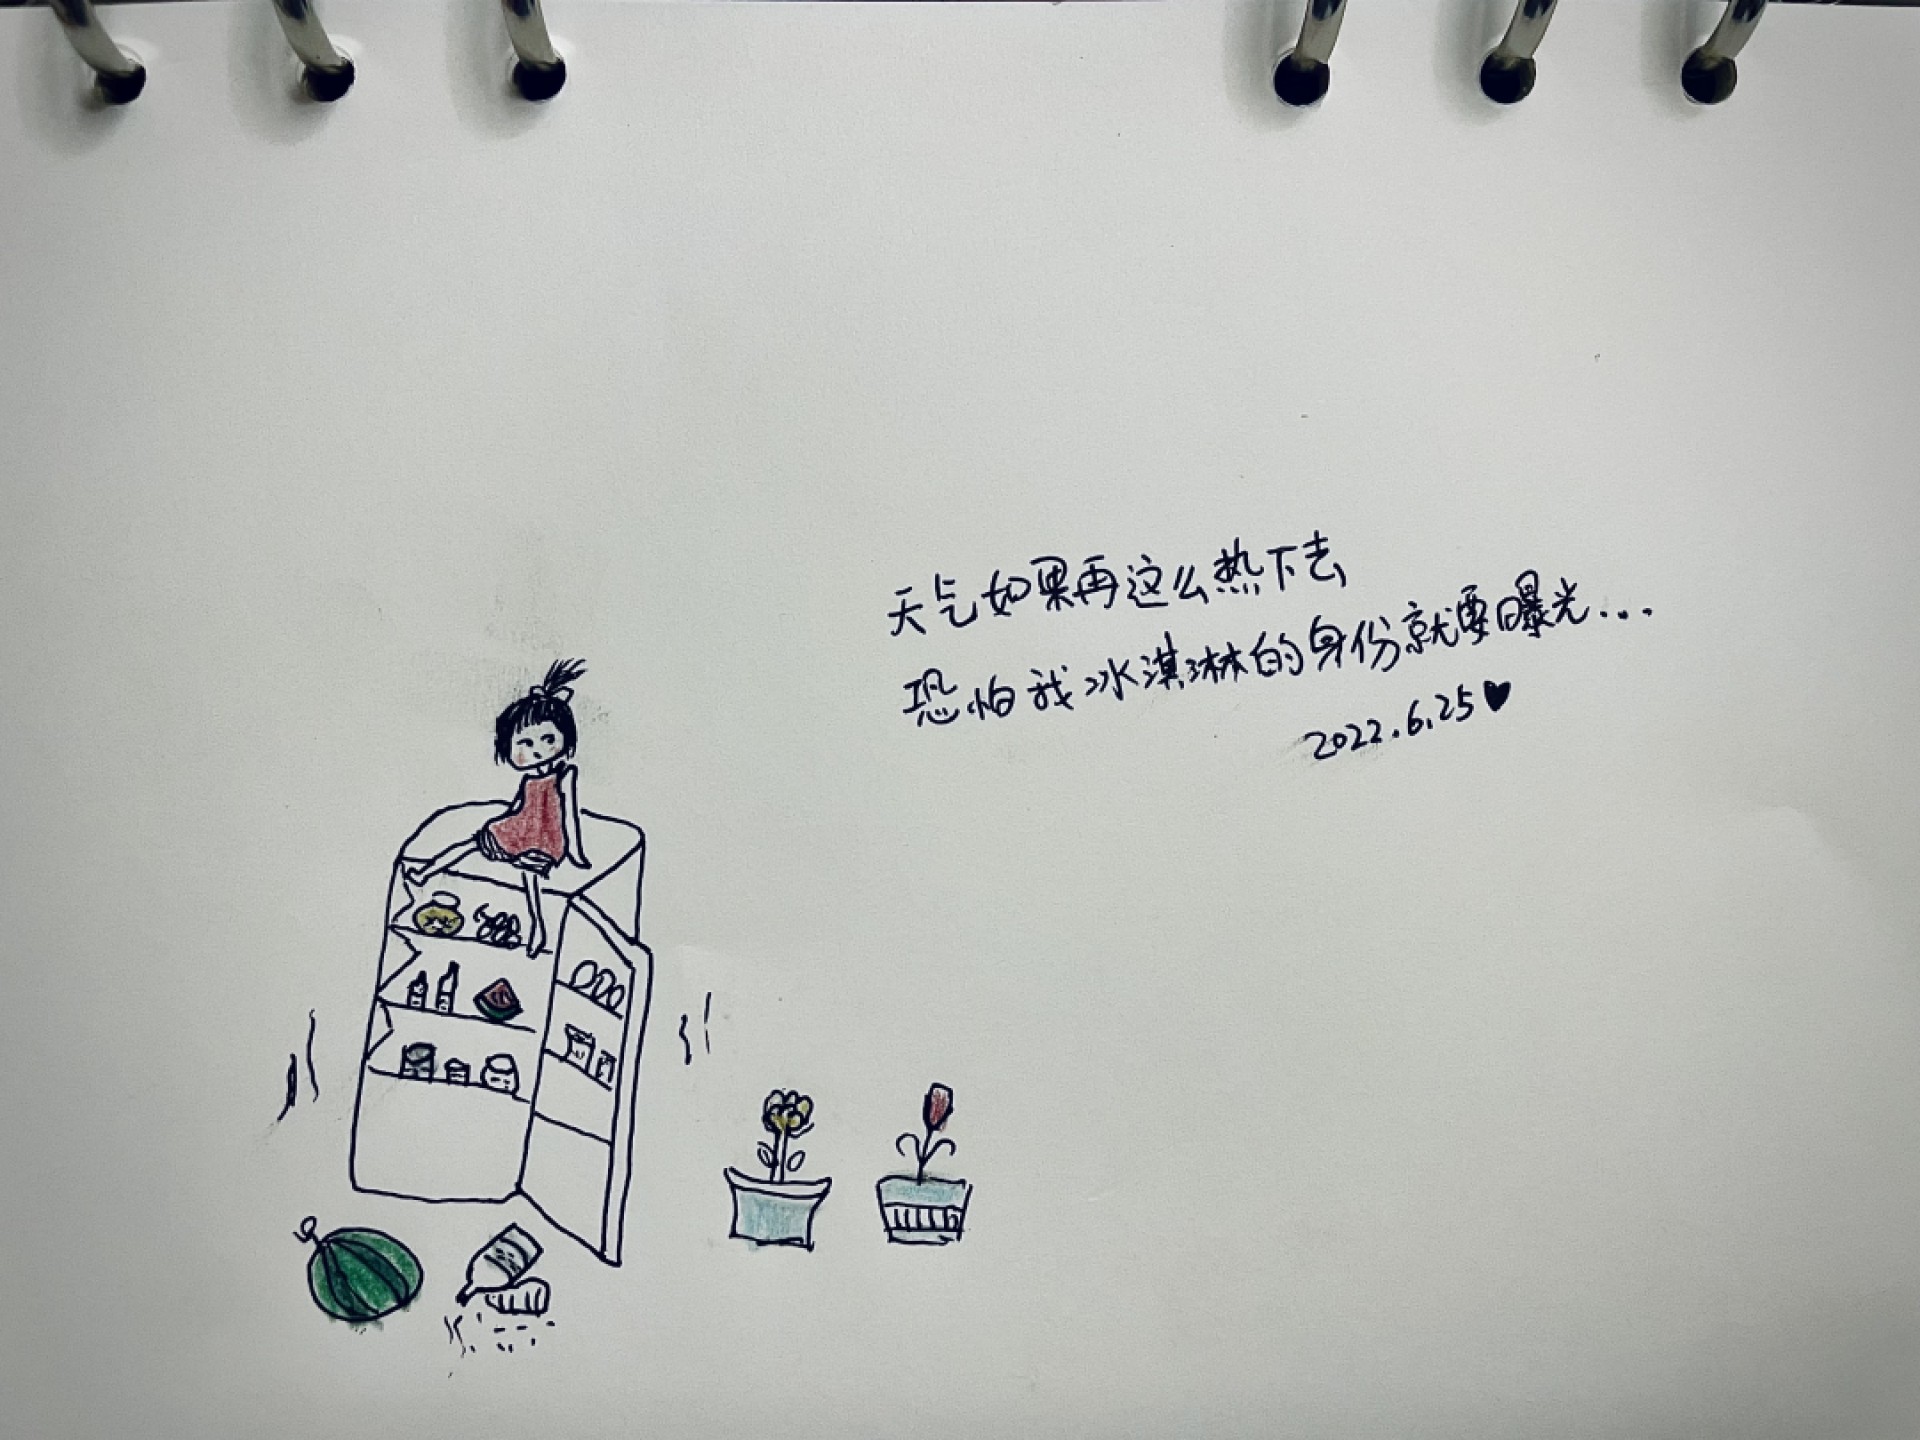 天气如果再这么热下去
恐怕我冰淇淋的身份就要曝光...
2022.6.25♥